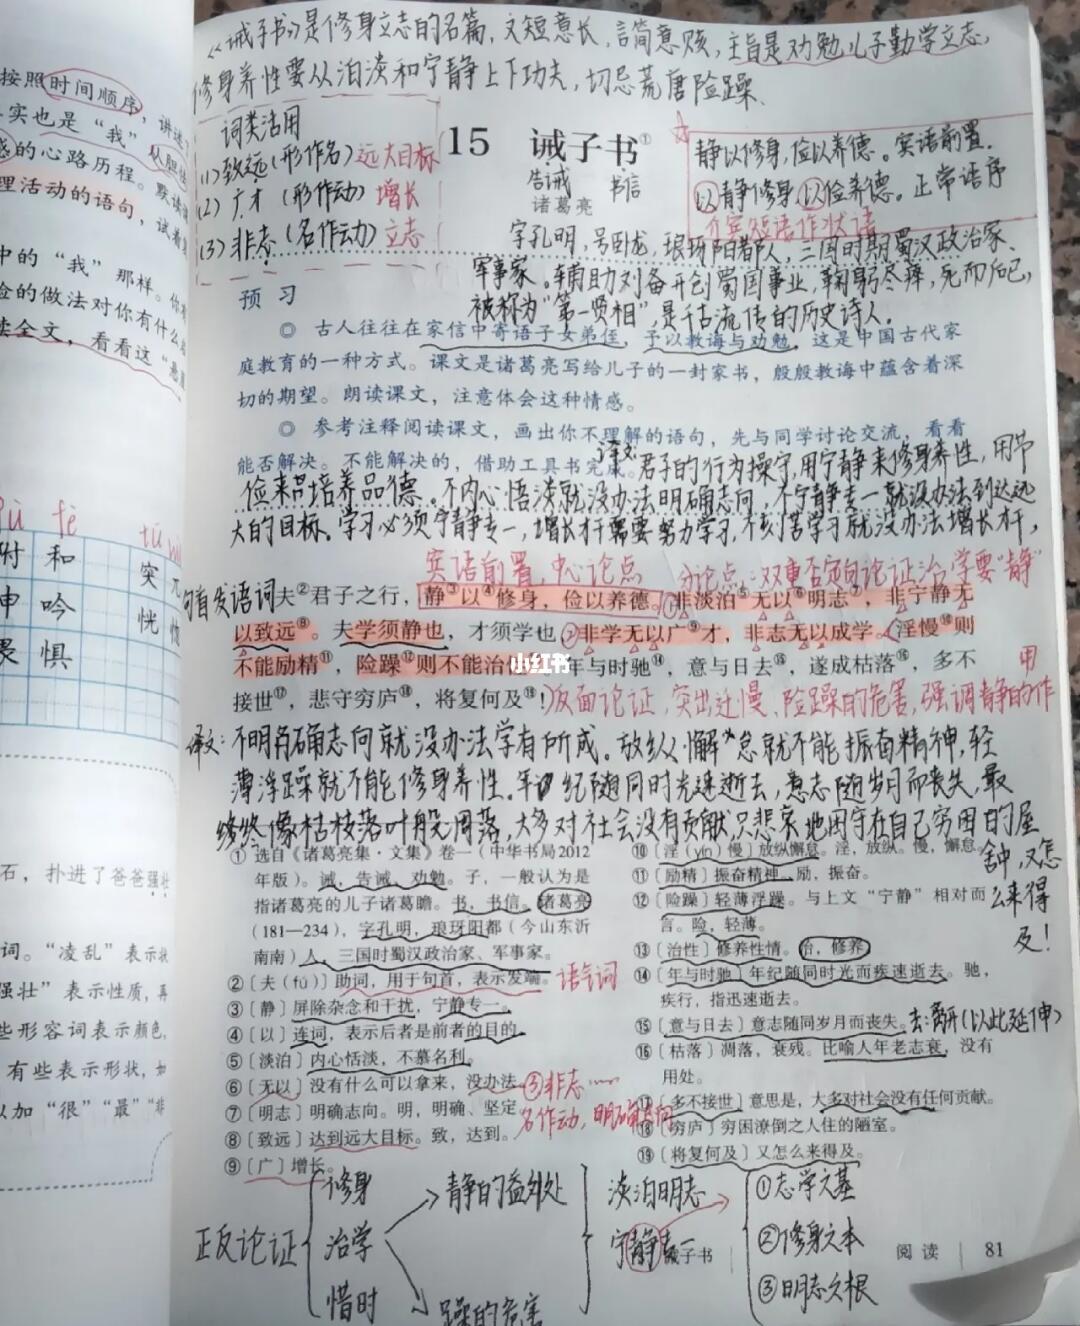 《诫子书》是修身立志的名篇，文短意长，言简意赅，主旨是劝勉儿子勤学立志，
修身养性要从泊淡和宁静上下功夫，切忌荒唐险躁、
词类活用
(1)致远(形作名)远大目标
(2)广才(形作动)增长
(3)非志(名作动)立志
15 诫子书①
告诫 书信
诸葛亮
静以修身，俭以养德。宾语前置.
以静修身以俭养德。正常语序
介宾短语作状语
字孔明，号卧龙，琅琊阳都人，三国时期蜀汉政治家、
军事家。辅助刘备开创蜀国事业，鞠躬尽瘁，死而后已，
被称为“第一贤相”，是千古流传的历史诗人。
预习
◎ 古人往往在家信中寄语子女弟侄，予以教诲与劝勉。这是中国古代家
庭教育的一种方式。课文是诸葛亮写给儿子的一封家书，殷殷教诲中蕴含着深
切的期望。朗读课文，注意体会这种情感。
◎ 参考注释阅读课文，画出你不理解的语句，先与同学讨论交流，看看
能否解决。不能解决的，借助工具书完成。
译文:君子的行为操守，用宁静来修身养性，用节
俭来培养品德。不内心恬淡就没办法明确志向，不宁静专一就没办法到达远
大的目标。学习必须宁静专一，增长才干需要努力学习，不刻苦学习就没办法增长才干，
宾语前置，中心论点 分论点：双重否定句论证治学要“静”
句首发语词夫②君子之行，静③以④修身，俭以养德。①非淡泊⑤无以⑥明志⑦，非宁静无
以致远⑧。夫学须静也，才须学也②非学无以广⑨才，非志无以成学。淫慢⑩则
不能励精⑪，险躁⑫则不能治性⑬。年与时驰⑭，意与日去⑮，遂成枯落⑯，多不
接世⑰，悲守穷庐⑱，将复何及⑲！反面论证，突出淫慢、险躁的危害，强调静的作用
小红书
译文：不明确志向就没办法学有所成。放纵懈怠就不能振奋精神，轻
薄浮躁就不能修身养性。年纪随同时光迅速逝去，意志随岁月而丧失，最
终像枯枝落叶般凋落，大多对社会没有贡献，只悲哀地困守在自己穷困的屋
舍中，又怎
么来得
及！
① 选自《诸葛亮集·文集》卷一（中华书局2012
年版）。诫，告诫、劝勉。子，一般认为是
指诸葛亮的儿子诸葛瞻。书，书信。诸葛亮
（181—234），字孔明，琅琊阳都（今山东沂
南南）人，三国时蜀汉政治家、军事家。
②〔夫（fú）〕助词，用于句首，表示发端。语气词
③〔静〕屏除杂念和干扰，宁静专一。
④〔以〕连词，表示后者是前者的目的。
⑤〔淡泊〕内心恬淡，不慕名利。
⑥〔无以〕没有什么可以拿来，没办法。③非志……
⑦〔明志〕明确志向。明，明确、坚定。名作动，明确志向
⑧〔致远〕达到远大目标。致，达到。
⑨〔广〕增长。
⑩〔淫（yín）慢〕放纵懈怠。淫，放纵。慢，懈怠。
⑪〔励精〕振奋精神。励，振奋。
⑫〔险躁〕轻薄浮躁。与上文“宁静”相对而
言。险，轻薄。
⑬〔治性〕修养性情。治，修养。
⑭〔年与时驰〕年纪随同时光而疾速逝去。驰，
疾行，指迅速逝去。
⑮〔意与日去〕意志随同岁月而丧失。去：离开(以此延伸)
⑯〔枯落〕凋落，衰残。比喻人年老志衰，没有
用处。
⑰〔多不接世〕意思是，大多对社会没有任何贡献。
⑱〔穷庐〕穷困潦倒之人住的陋室。
⑲〔将复何及〕又怎么来得及。
正反论证
修身
治学
惜时
静的益处
躁的危害
淡泊明志
宁静专一
①志学之基
②修身之本
③明志之根
诫子书
阅读 81
按照时间顺序，讲述
实也是“我”
的心路历程。默读
理活动的语句，试着
中的“我”那样。你
险的做法对你有什么
读全文，看看这“悬
附 和
申 吟
畏 惧
突 兀
恍
石，扑进了爸爸强壮
词。“凌乱”表示状
强壮”表示性质，再
些形容词表示颜色，
有些表示形状，如
以加“很”“最”“非